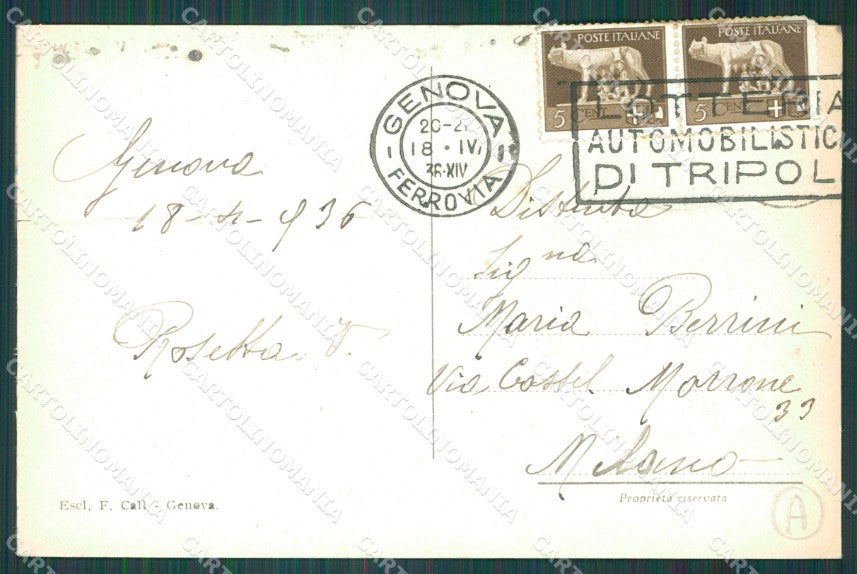 POSTE ITALIANE
5 CENT
POSTE ITALIANE
5 CENT
GENOVA
20-21
18 · IV
36·XIV
FERROVIA
LOTTERIA
AUTOMOBILISTICA
DI TRIPOLI
Genova
18-4-936
Rosetta V.
Distinta
Signa
Maria Berrini
Via Castel Morrone
33
Milano
Escl. F. Calì - Genova.
Proprietà riservata
A
CARTOLINOMANIA